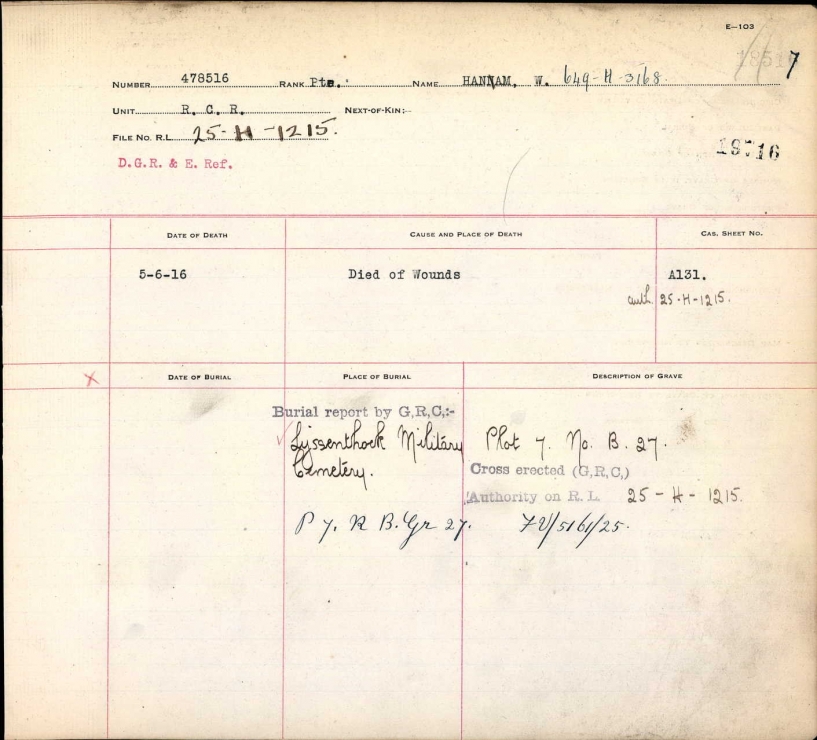 E—103
NUMBER 478516 RANK Pte. NAME HANNAM, W. 649-H-3168. 7
UNIT R. C. R. NEXT-OF-KIN:—
FILE NO. R.L. 25-H-1215.
D.G.R. & E. Ref.
DATE OF DEATH CAUSE AND PLACE OF DEATH CAS. SHEET NO.
5-6-16 Died of Wounds A131.
auth. 25-H-1215.
DATE OF BURIAL PLACE OF BURIAL DESCRIPTION OF GRAVE
Burial report by G,R,C,:-
Lijssenthoek Military Plot 7. No. B. 27.
Cemetery. Cross erected (G,R,C,)
Authority on R. L. 25-H-1215.
P 7. R B. Gr 27.